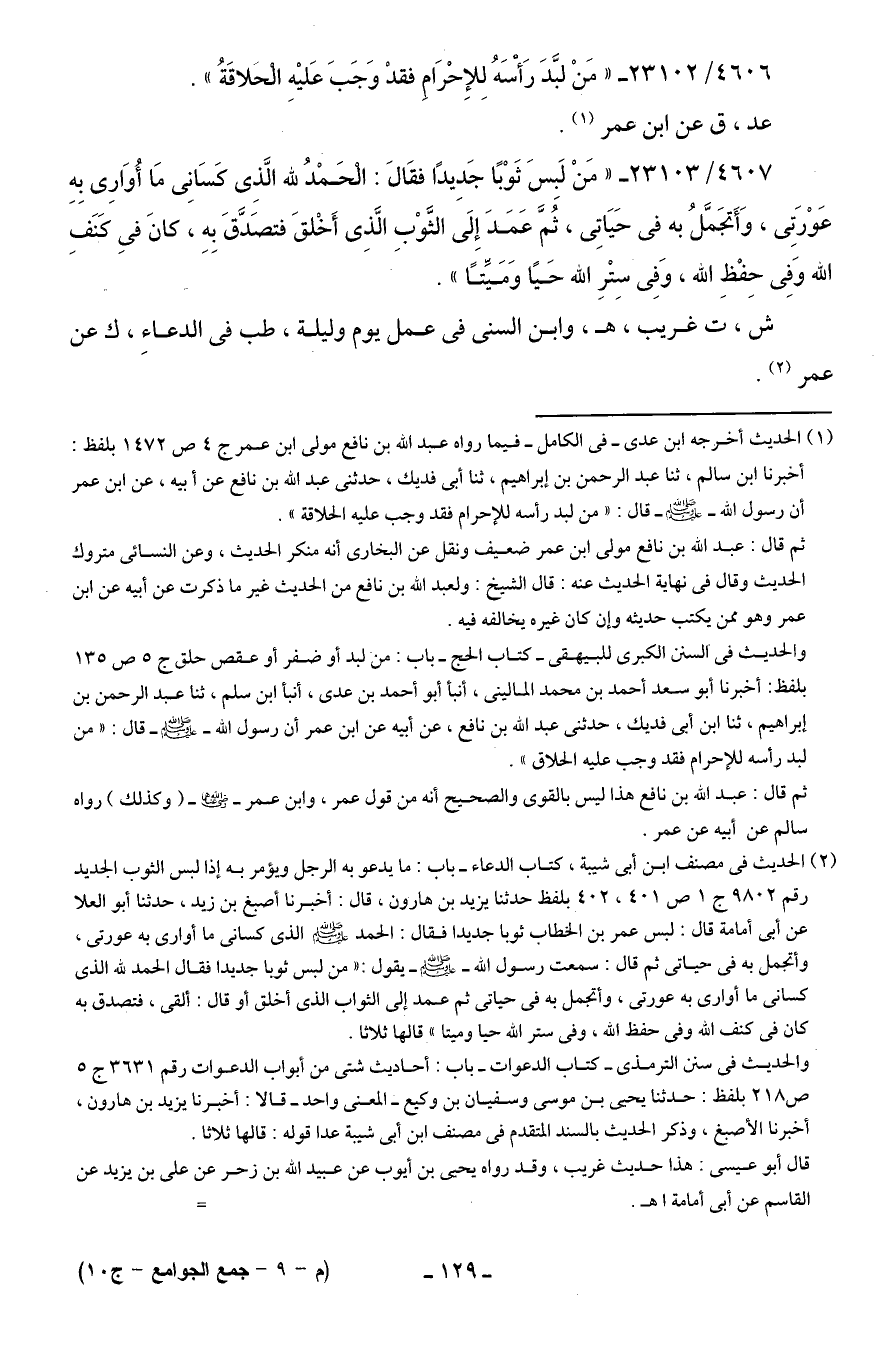 ٤٦٠٦/ ٢٣١٠٢ـ « مَنْ لبَّدَ رَأْسَهُ لِلإِحْرَامِ فقدْ وَجَبَ عَلَيْهِ الْحَلاقَةُ » .
عد ، ق عن ابن عمر (١) .
٤٦٠٧/ ٢٣١٠٣ـ « مَنْ لَبَسَ ثَوْبًا جَدِيدًا فقَالَ : الْحَمْدُ لله الَّذِى كَسَانِى مَا أُوَارِى بِهِ
عَوْرَتِى ، وَأَتجَمَّلُ به فى حَيَاتِى ، ثُمَّ عَمَدَ إِلَى الثَّوْبِ الَّذِى أَخْلقَ فتصَدَّقَ بِهِ ، كانَ فى كَنَفِ
الله وَفِى حِفْظِ الله ، وَفِى سِتْرِ الله حَيًا وَمَيِّتًا » .
ش ، ت غريب ، هـ ، وابن السنى فى عمل يوم وليلة ، طب فى الدعاءِ ، ك عن
عمر (٢) .
(١) الحديث أخرجه ابن عدى ـ فى الكامل ـ فيما رواه عبد الله بن نافع مولى ابن عمر ج ٤ ص ١٤٧٢ بلفظ :
أخبرنا ابن سالم ، ثنا عبد الرحمن بن إبراهيم ، ثنا أبى فديك ، حدثنى عبد الله بن نافع عن أبيه ، عن ابن عمر
أن رسول الله ـ ﷺ ـ قال : « من لبد رأسه للإحرام فقد وجب عليه الحلاقة » .
ثم قال : عبد الله بن نافع مولى ابن عمر ضعيف ونقل عن البخارى أنه منكر الحديث ، وعن النسائى متروك
الحديث وقال فى نهاية الحديث عنه : قال الشيخ : ولعبد الله بن نافع من الحديث غير ما ذكرت عن أبيه عن ابن
عمر وهو ممن يكتب حديثه وإن كان غيره يخالفه فيه .
والحديث فى السنن الكبرى للبيهقى ـ كتاب الحج ـ باب : من لبد أو ضفر أو عقص حلق ج ٥ ص ١٣٥
بلفظ : أخبرنا أبو سعد أحمد بن محمد المالينى ، أنبأ أبو أحمد بن عدى ، أنبأ ابن سلم ، ثنا عبد الرحمن بن
إبراهيم ، ثنا ابن أبى فديك ، حدثنى عبد الله بن نافع ، عن أبيه عن ابن عمر أن رسول الله ـ ﷺ ـ قال : « من
لبد رأسه للإحرام فقد وجب عليه الحلاق » .
ثم قال : عبد الله بن نافع هذا ليس بالقوى والصحيح أنه من قول عمر ، وابن عمر ـ ـ ( وكذلك ) رواه
سالم عن أبيه عن عمر .
(٢) الحديث فى مصنف ابن أبى شيبة ، كتاب الدعاء ـ باب : ما يدعو به الرجل ويؤمر به إذا لبس الثوب الجديد
رقم ٩٨٠٢ ج ١ ص ٤٠١ ، ٤٠٢ بلفظ حدثنا يزيد بن هارون ، قال : أخبرنا أصبغ بن زيد ، حدثنا أبو العلا
عن أبى أمامة قال : لبس عمر بن الخطاب ثوبا جديدا فقال : الحمد ﷺ الذى كسانى ما أوارى به عورتى ،
وأتجمل به فى حياتى ثم قال : سمعت رسول الله ـ ﷺ ـ يقول :« من لبس ثوبا جديدا فقال الحمد لله الذى
كسانى ما أوارى به عورتى ، وأتجمل به فى حياتى ثم عمد إلى الثواب الذى أخلق أو قال : ألقى ، فتصدق به
كان فى كنف الله وفى حفظ الله ، وفى ستر الله حيا وميتا » قالها ثلاثا .
والحديث فى سنن الترمذى ـ كتاب الدعوات ـ باب : أحاديث شتى من أبواب الدعوات رقم ٣٦٣١ ج ٥
ص٢١٨ بلفظ : حدثنا يحيى بن موسى وسفيان بن وكيع ـ المعنى واحد ـ قالا : أخبرنا يزيد بن هارون ،
أخبرنا الأصبغ ، وذكر الحديث بالسند المتقدم فى مصنف ابن أبى شيبة عدا قوله : قالها ثلاثا .
قال أبو عيسى : هذا حديث غريب ، وقد رواه يحيى بن أيوب عن عبيد الله بن زحر عن على بن يزيد عن
القاسم عن أبى أمامة ا هـ . =
ـ ١٢٩ ـ (م - ٩ - جمع الجوامع - ج١٠)